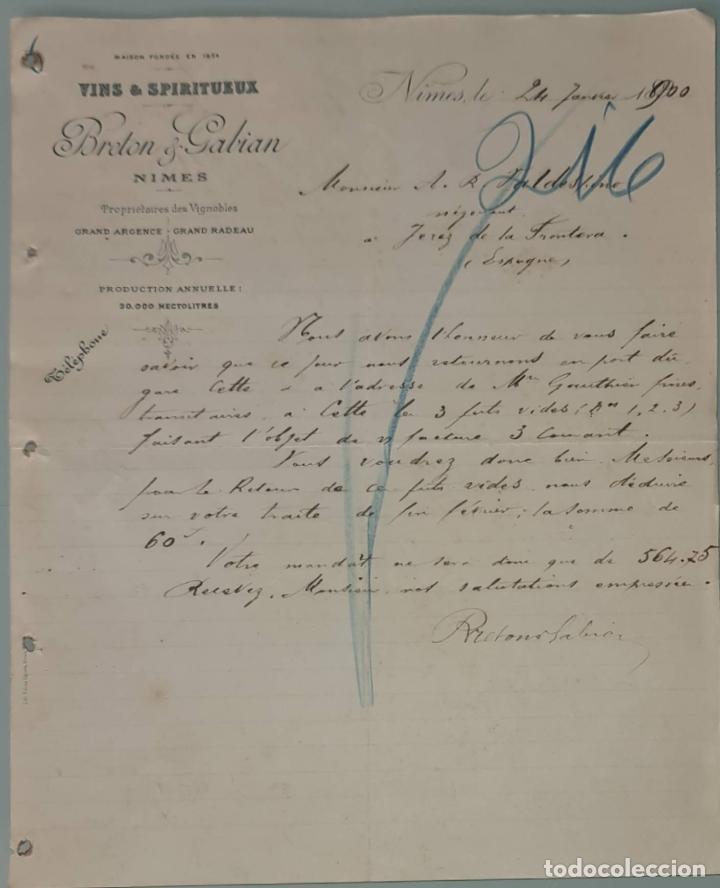 MAISON FONDÉE EN 1854
VINS & SPIRITUEUX
Breton & Gabian
NIMES
Propriétaires des Vignobles
GRAND ARGENCE - GRAND RADEAU
PRODUCTION ANNUELLE:
30.000 HECTOLITRES
Téléphone
Nimes, le 24 Janvier 1900
Monsieur A. R. Valdespino
négociant
a Jerez de la Frontera.
(Espagne)
Nous avons l'honneur de vous faire
savoir que ce jour nous retournons en port dû
gare Cette à l'adresse de Mrs Gauthier frères
transitaires, a Cette les 3 futs vides (Nos 1, 2, 3)
faisant l'objet de v/ facture 3 Courant.
Vous voudrez donc bien Messieurs,
pour le Retour de ce futs vides, nous déduire
sur votre traite de fin février, la somme de
60f.
Votre mandat ne sera donc que de 564.75
Recevez, Monsieur, nos salutations empressées.
Breton & Gabian
todocoleccion